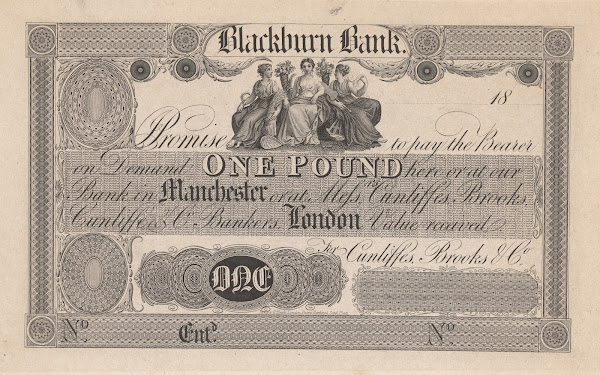 Blackburn Bank.
18
Promise to pay the Bearer
on Demand ONE POUND here or at our
Bank in Manchester or at Mess.rs Cunliffes, Brooks,
Cunliffe & Co. Bankers London Value received.
For Cunliffes, Brooks & Co.
ONE
No. Entd. No.